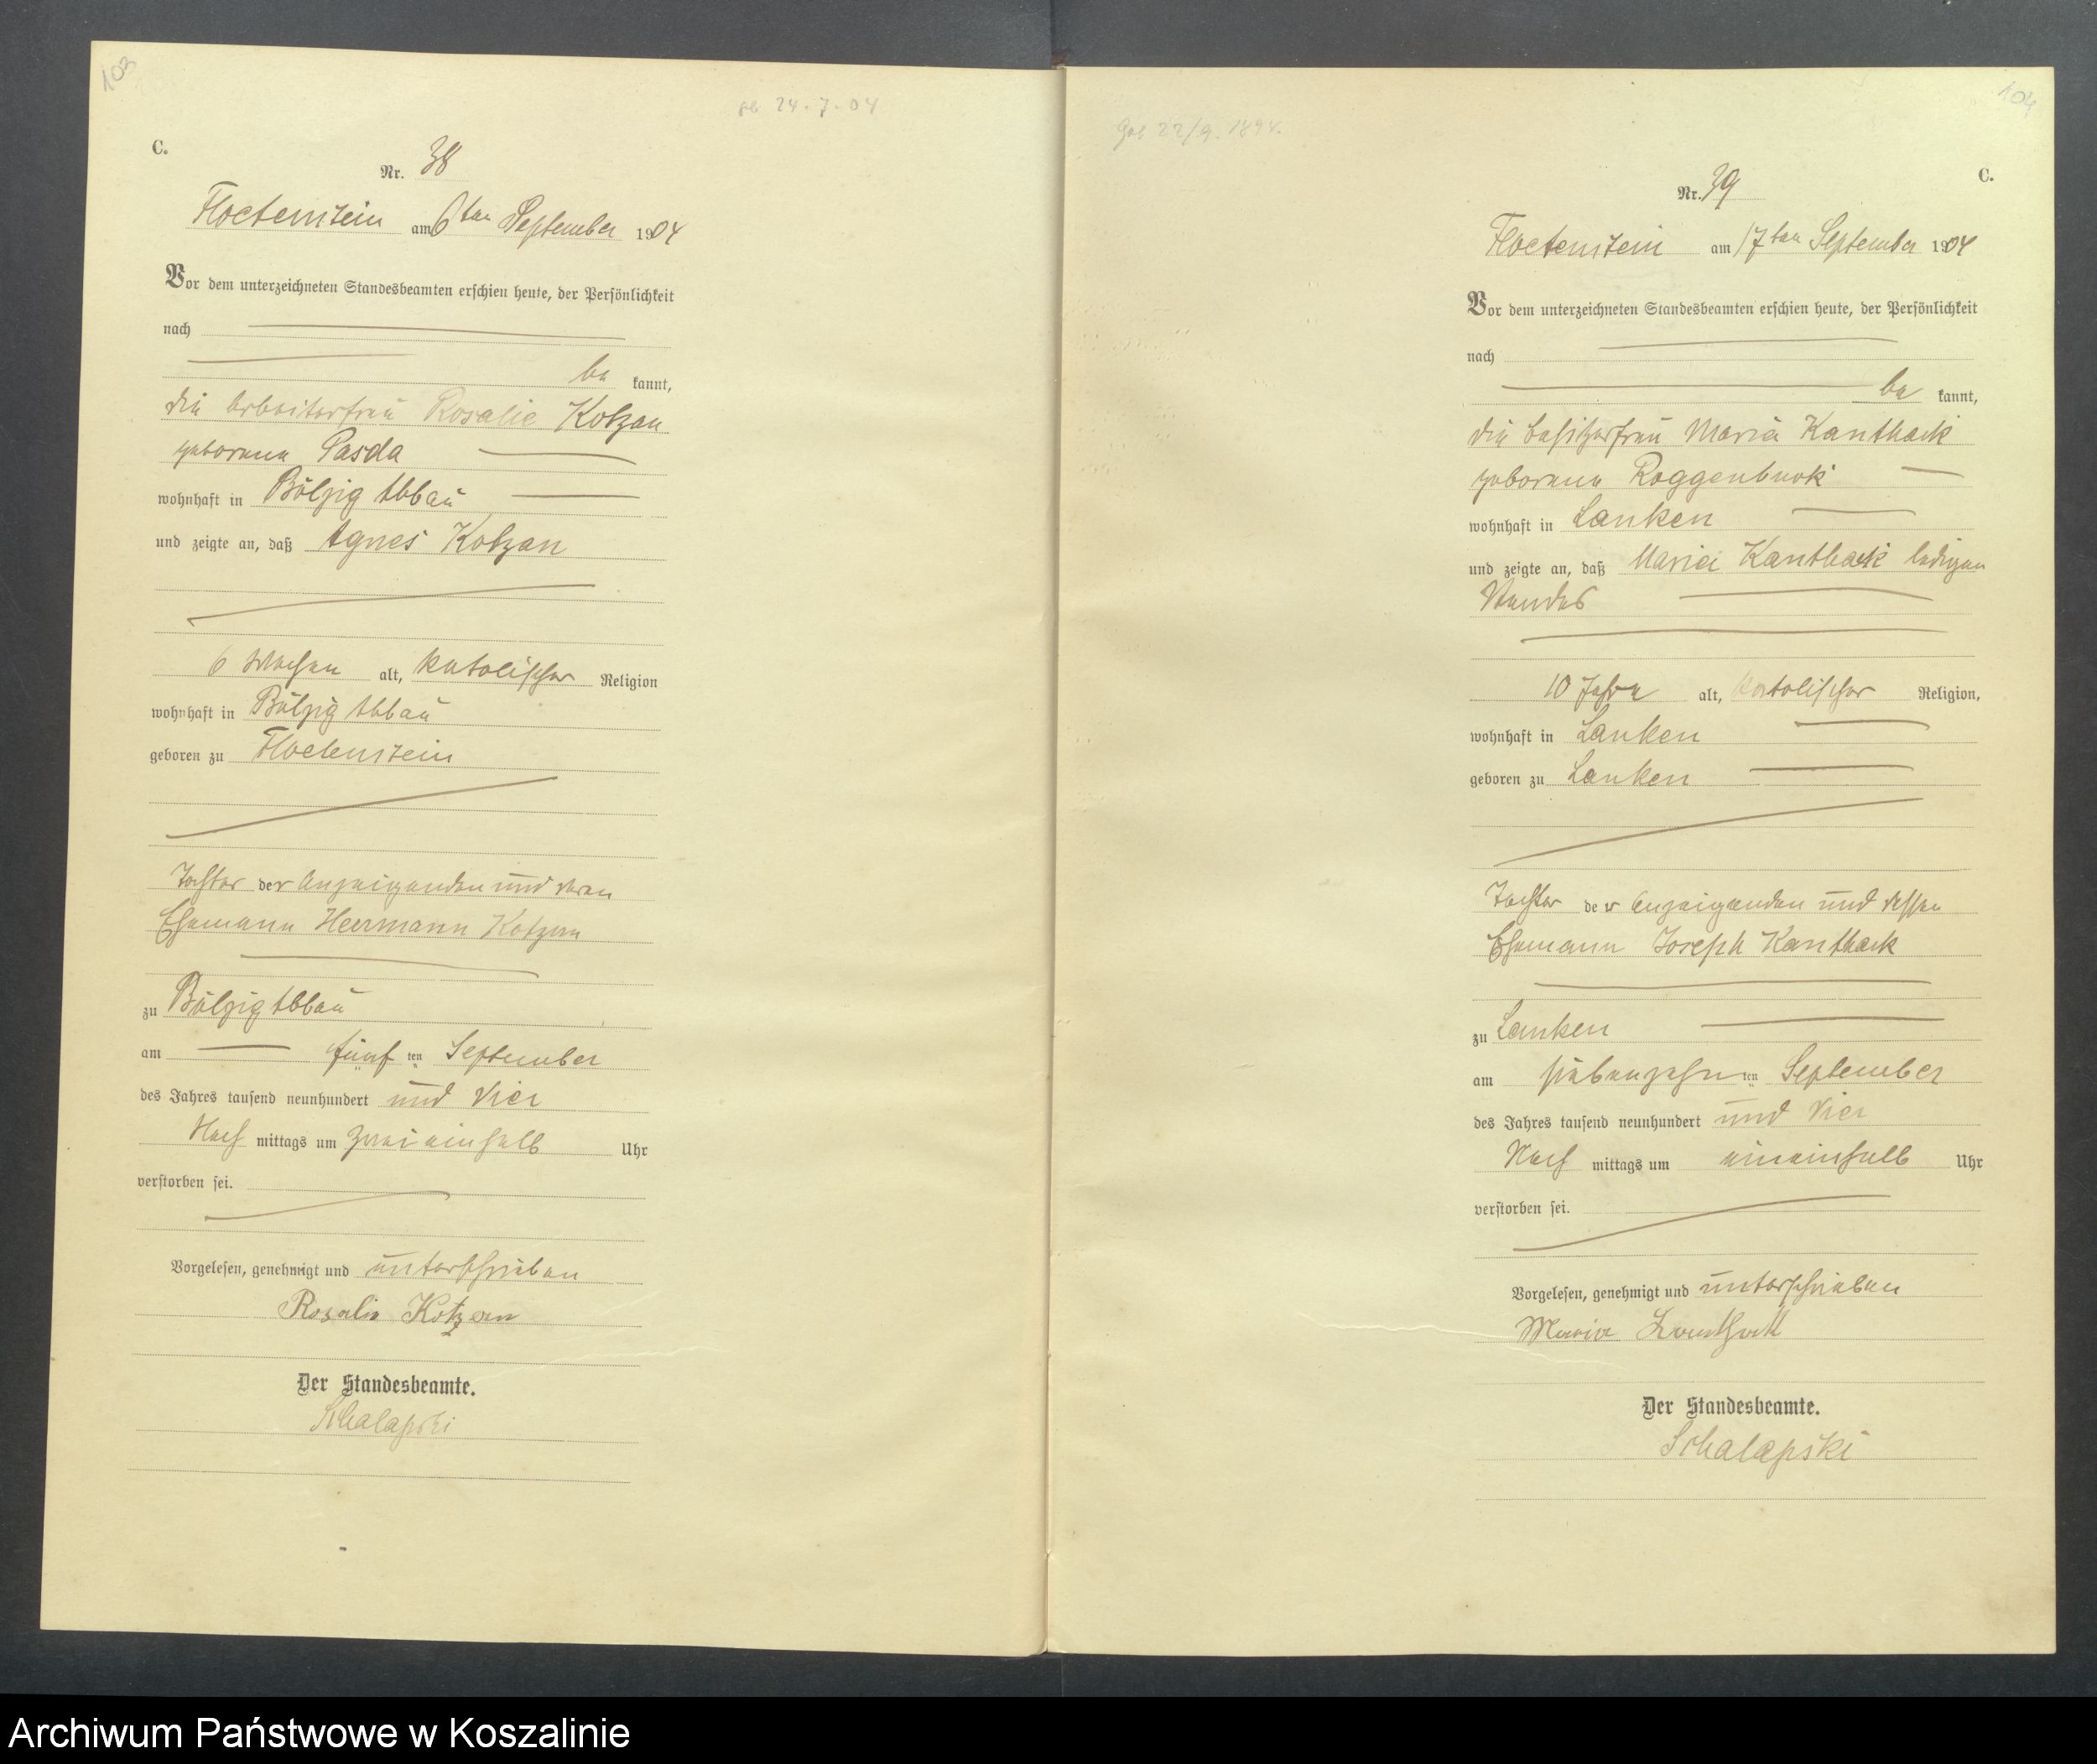 103
geb 24.7.04
C.
Nr. 38
Floetenstein am 6ten September 1904
Vor dem unterzeichneten Standesbeamten erschien heute, der Persönlichkeit
nach
be kannt,
die Arbeiterfrau Rosalie Kotzan
geborene Pasda
wohnhaft in Bölzig Abbau
und zeigte an, daß Agnes Kotzan
6 Wochen alt, katolischer Religion
wohnhaft in Bölzig Abbau
geboren zu Floetenstein
Tochter der Anzeigenden und deren
Ehemann Heermann Kotzan
zu Bölzig Abbau
am fünf ten September
des Jahres tausend neunhundert und vier
Nach mittags um zwei einhalb Uhr
verstorben sei.
Vorgelesen, genehmigt und unterschrieben
Rosalie Kotzan
Der Standesbeamte.
Schalapski
104
Geb 22/9. 1894.
C.
Nr. 39
Floetenstein am 17ten September 1904
Vor dem unterzeichneten Standesbeamten erschien heute, der Persönlichkeit
nach
be kannt,
die Besitzerfrau Maria Kanthack
geborene Roggenbuck
wohnhaft in Lanken
und zeigte an, daß Maria Kanthack ledigen
Standes
10 Jahre alt, katolischer Religion,
wohnhaft in Lanken
geboren zu Lanken
Tochter der Anzeigenden und dessen
Ehemann Joseph Kanthack
zu Lanken
am siebenzehn ten September
des Jahres tausend neunhundert und vier
Nach mittags um eineinhalb Uhr
verstorben sei.
Vorgelesen, genehmigt und unterschrieben
Maria Kanthack
Der Standesbeamte.
Schalapski
Archiwum Państwowe w Koszalinie